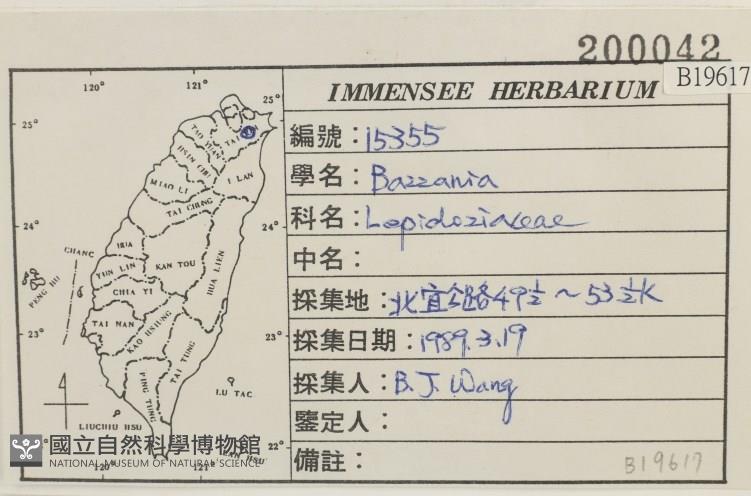 200042
B19617
IMMENSEE HERBARIUM
編號：15355
學名：Bazzania
科名：Lepidoziaceae
中名：
採集地：北宜公路49½～53½K
採集日期：1989.3.19
採集人：B.J. Wang
鑒定人：
備註：
B19617
120° 121°
25° 25°
24° 24°
23° 23°
22°
120° 121°
TAO YUAN
HSIN CHU
I LAN
MIAO LI
TAI CHUNG
CHANG
HUA
YUN LIN
NAN TOU
HUA LIEN
PENG HU
CHIA YI
TAI NAN
KAO HSIUNG
TAI TUNG
PING TUNG
LU TAO
LIUCHIU HSU
LAN HSU
國立自然科學博物館
NATIONAL MUSEUM OF NATURAL SCIENCE